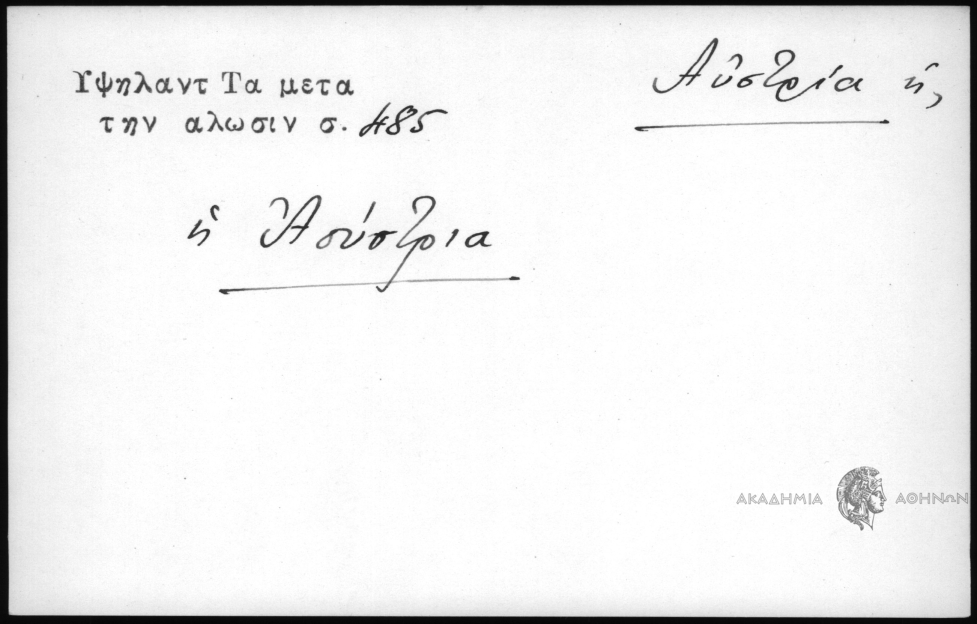 Υψηλαντ Τα μετα
την αλωσιν σ. 485
Αὐστρία ἡ,
ἡ Ἀούστρια
ΑΚΑΔΗΜΙΑ ΑΘΗΝΩΝ